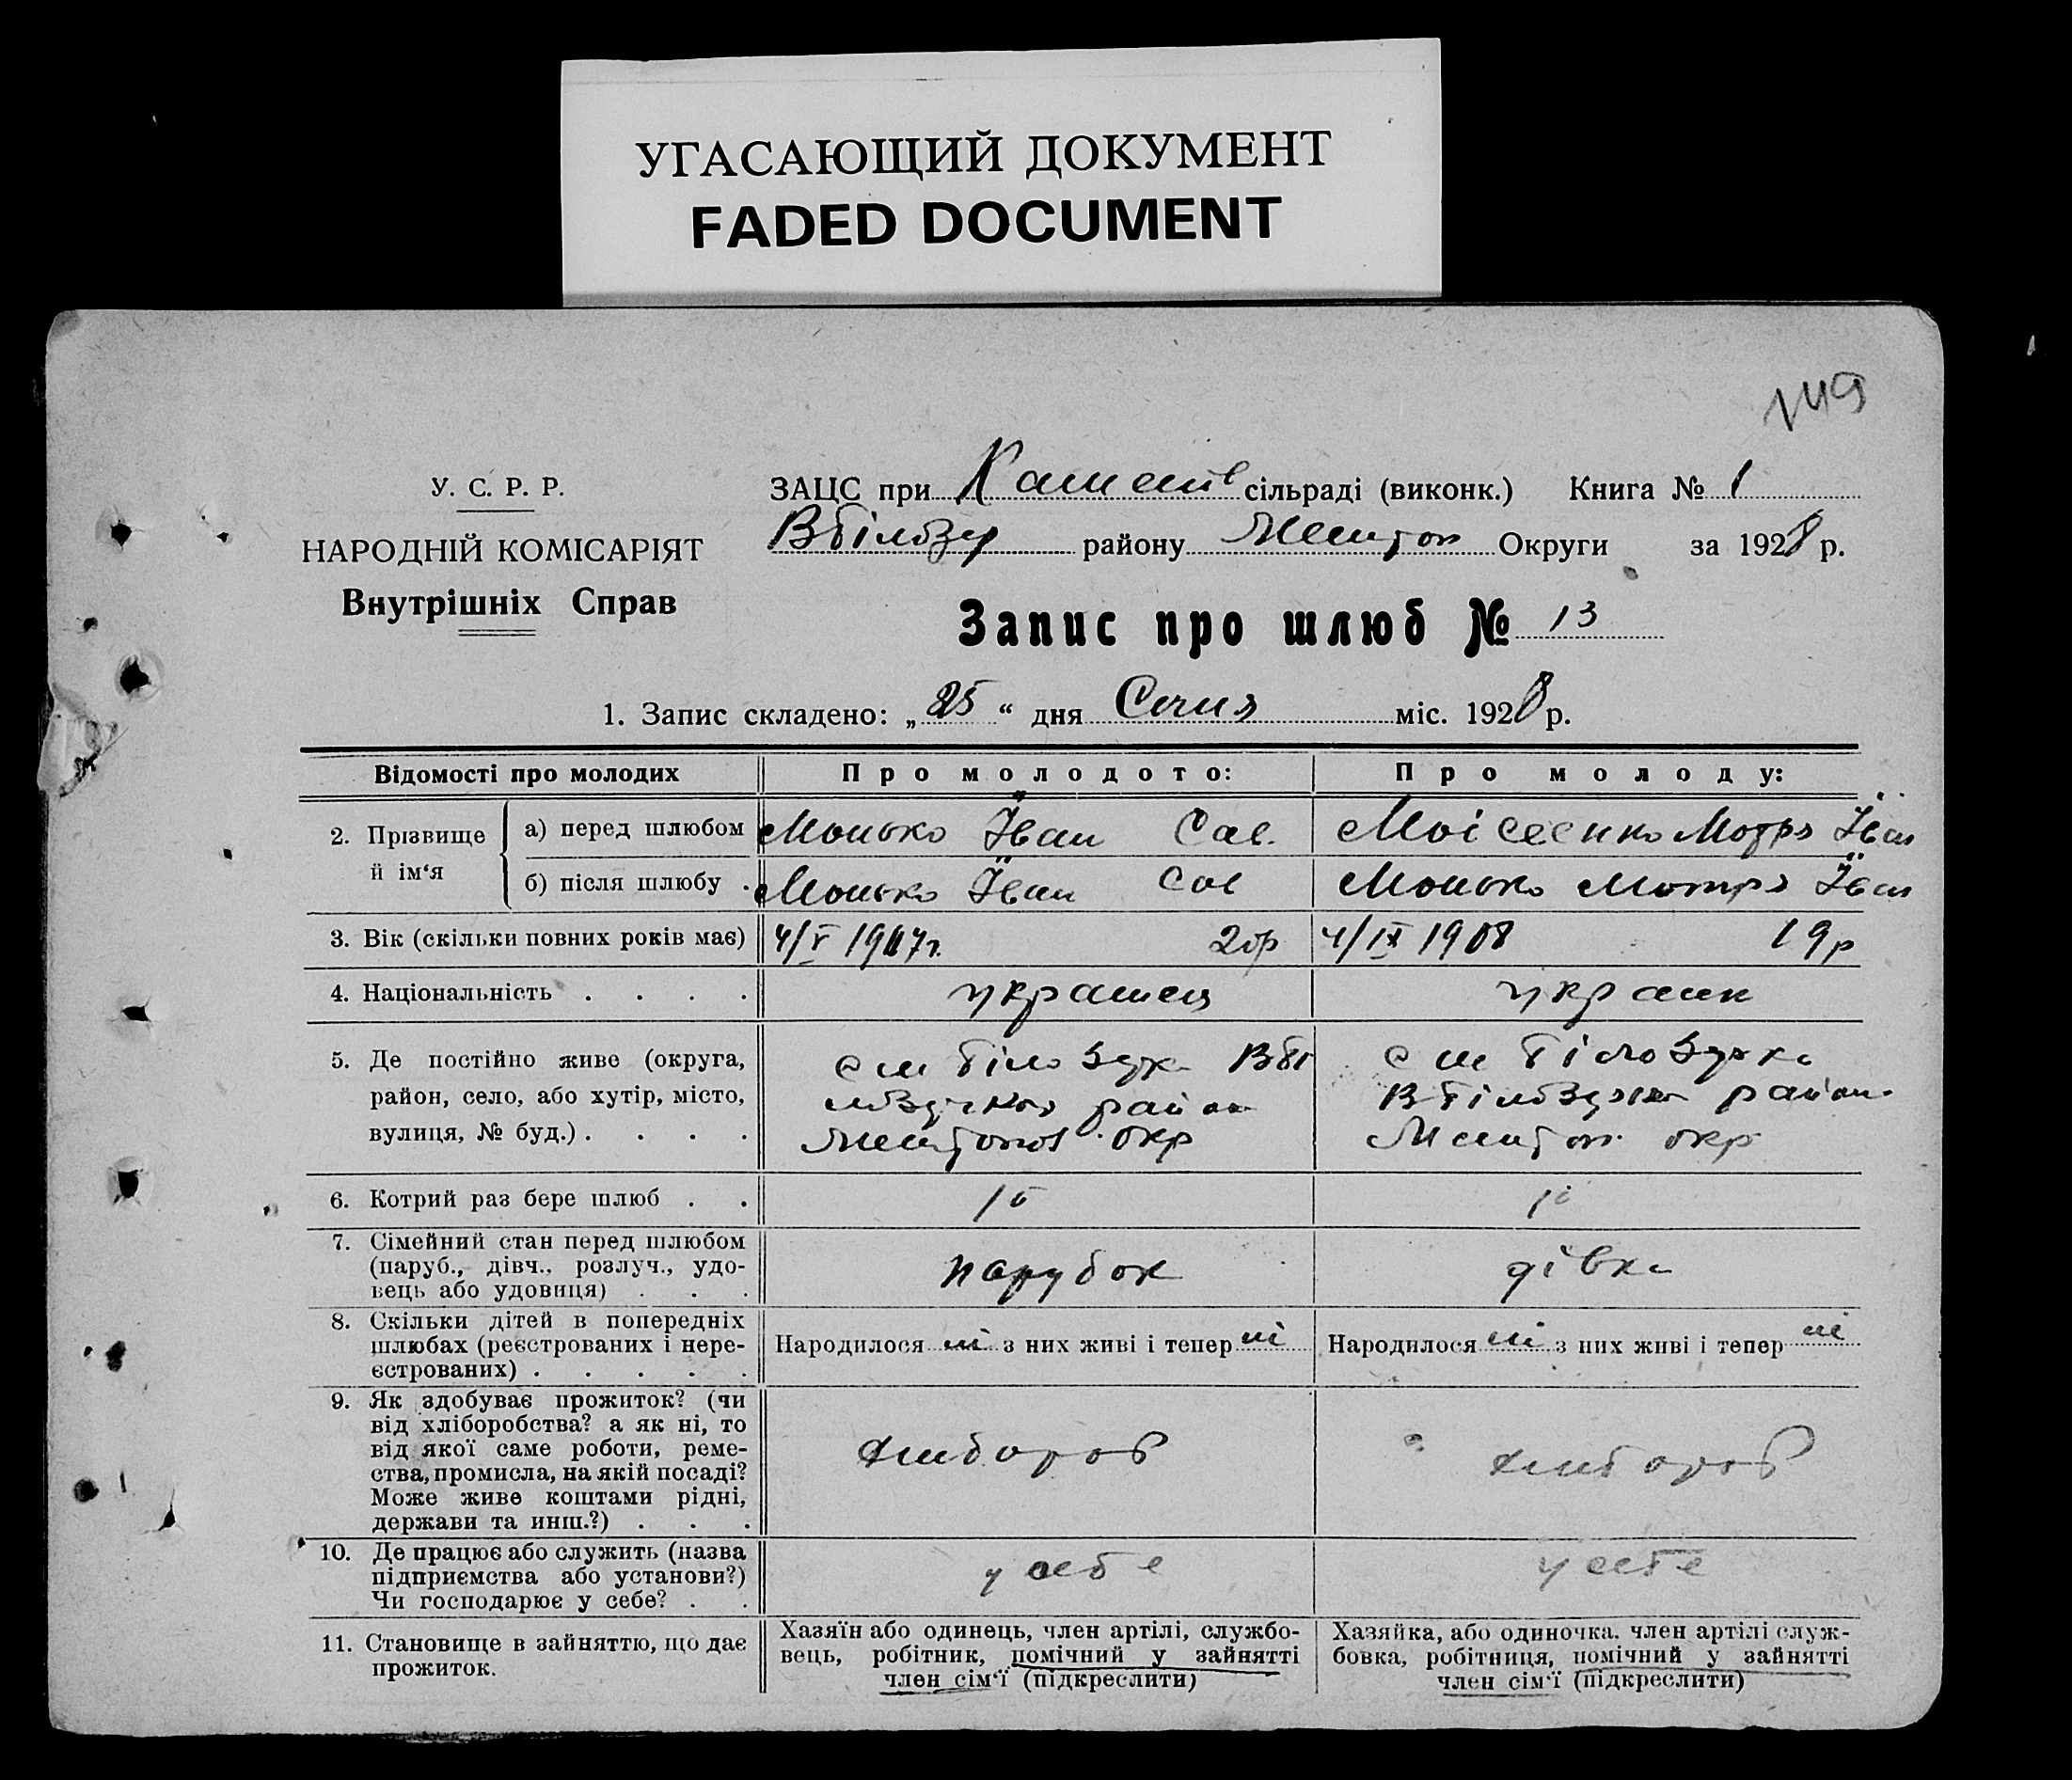 УГАСАЮЩИЙ ДОКУМЕНТ
FADED DOCUMENT
149
У. С. Р. Р.
НАРОДНІЙ КОМІСАРІЯТ
Внутрішніх Справ
ЗАЦС при сільраді (виконк.) Книга № 1
району Округи за 1928 р.
Запис про шлюб № 13
1. Запис складено: „25“ дня Січня міс. 1928 р.
Відомості про молодих Про молодого: Про молоду:
2. Прізвище й ім‘я
а) перед шлюбом Монько Іван Сав. Моісеенко Мотря Іван
б) після шлюбу Монько Іван Сав Монько Мотря Іван
3. Вік (скільки повних років має) 4/V 1907г. 20р 4/IX 1908 19р
4. Національність . . . . українец україн
5. Де постійно живе (округа,
район, село, або хутір, місто,
вулиця, № буд.) . . . .
с м Білозурка
район
окр
с м Білозурка
район
окр
6. Котрий раз бере шлюб . . 1й 1й
7. Сімейний стан перед шлюбом
(паруб., дівч., розлуч., удо-
вець або удовиця) . . .
парубок дівка
8. Скільки дітей в попередніх
шлюбах (реєстрованих і нере-
єстрованих) . . . . .
Народилося ні з них живі і тепер ні Народилося ні з них живі і тепер ні
9. Як здобуває прожиток? (чи
від хліборобства? а як ні, то
від якої саме роботи, реме-
ства, промисла, на якій посаді?
Може живе коштами рідні,
держави та инш.?) . . .
хлібороб хлібороб
10. Де працює або служить (назва
підприємства або установи?)
Чи господарює у себе? . .
у себе у себе
11. Становище в зайняттю, що дає
прожиток.
Хазяїн або одинець, член артілі, службо-
вець, робітник, помічний у зайнятті
член сім‘ї (підкреслити)
Хазяйка, або одиночка. член артілі служ-
бовка, робітниця, помічний у зайнятті
член сім‘ї (підкреслити)